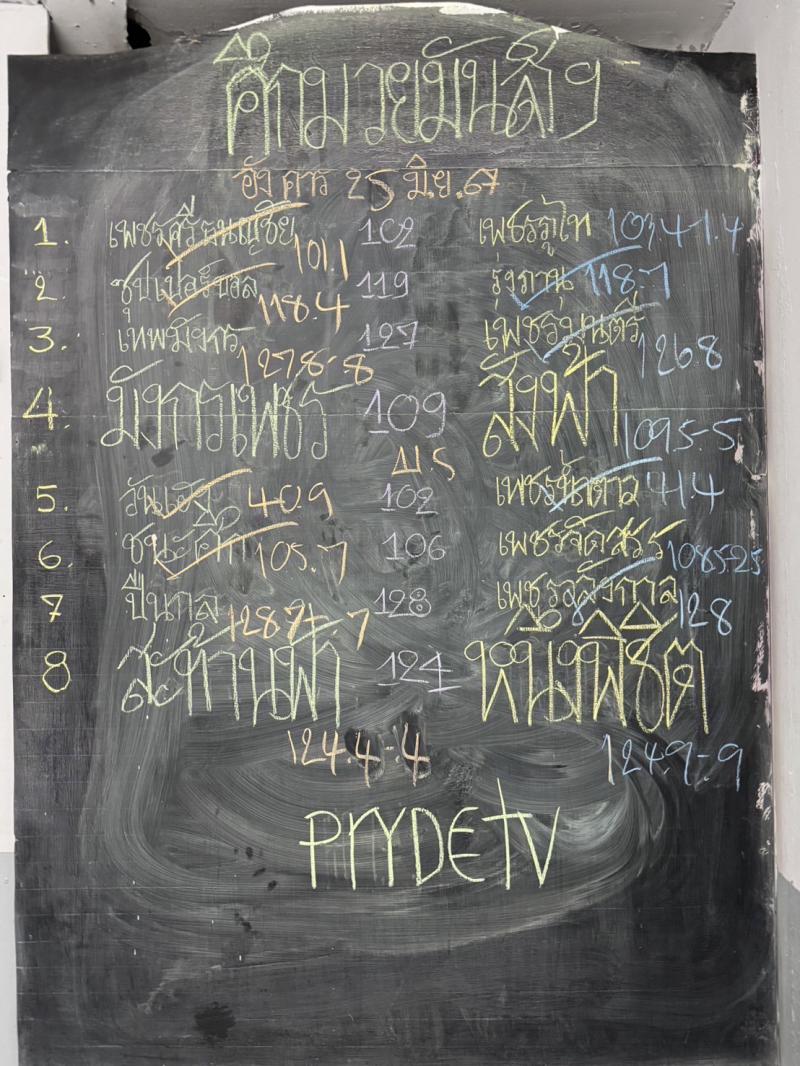 ศึกมวยมันส์ๆ
อังคาร 25 มิ.ย.67
1. เพชรศรีรุ่งเรืองชัย 101.1 102 เพชรภูไท 103.4-1.4
2. ซุปเปอร์บอล 118.4 119 รุ่งภานุ 118.7
3. เทพมังกร 127.8-.8 127 เพชรมนตรี 126.8
4. มังกรเพชร 109 สิงฟ้า 109.5-.5
พ.ร
5. วันเฮง 40.9 102 เพชรขุนดาว 41.4
6. ชนะศึก 105.7 106 เพชรจัดสรร 108.5-2.5
7 ปืนกล 128.7-.7 128 เพชรอลังกาล 128
8 สะท้านฟ้า 124.4-.4 124 หนึ่งพิชิต 124.9-.9
PRYDE tV